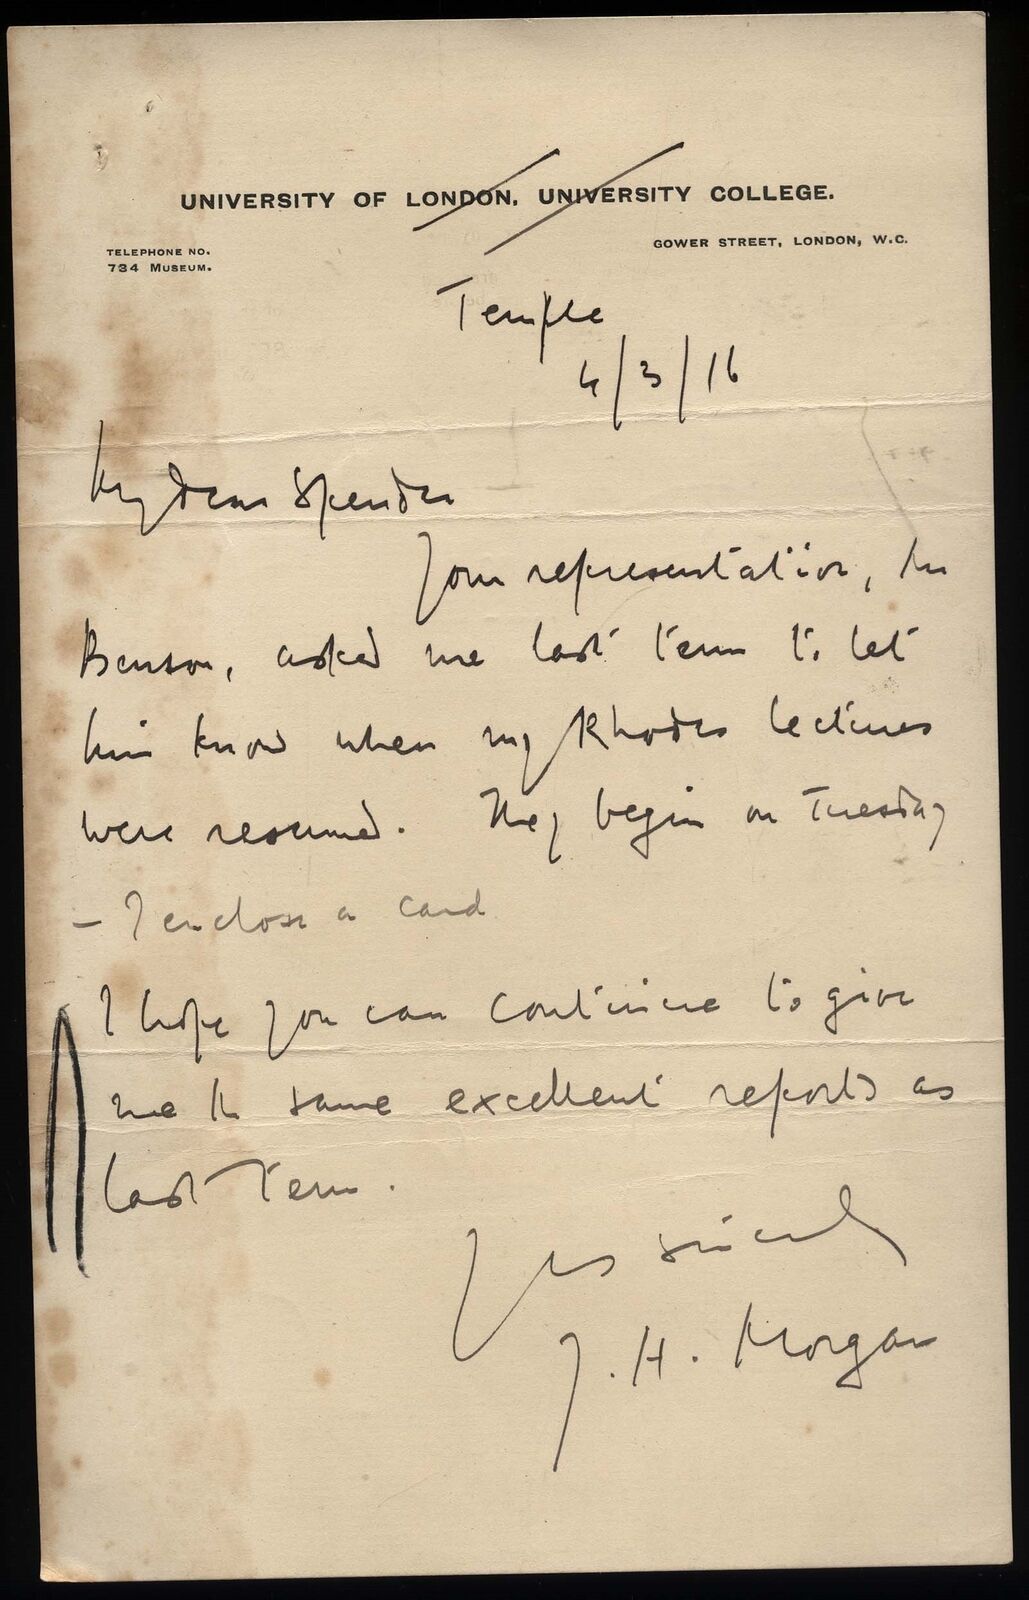 UNIVERSITY OF LONDON, UNIVERSITY COLLEGE.
TELEPHONE NO.
734 MUSEUM.
GOWER STREET, LONDON, W.C.
Temple
4/3/16
My dear Spender
Your representative, Mr
Benson, asked me last term to let
him know when my Rhodes lectures
were resumed. They begin on Tuesday
– I enclose a card
I hope you can continue to give
me the same excellent reports as
last term.
Yrs sincerely
J. H. Morgan